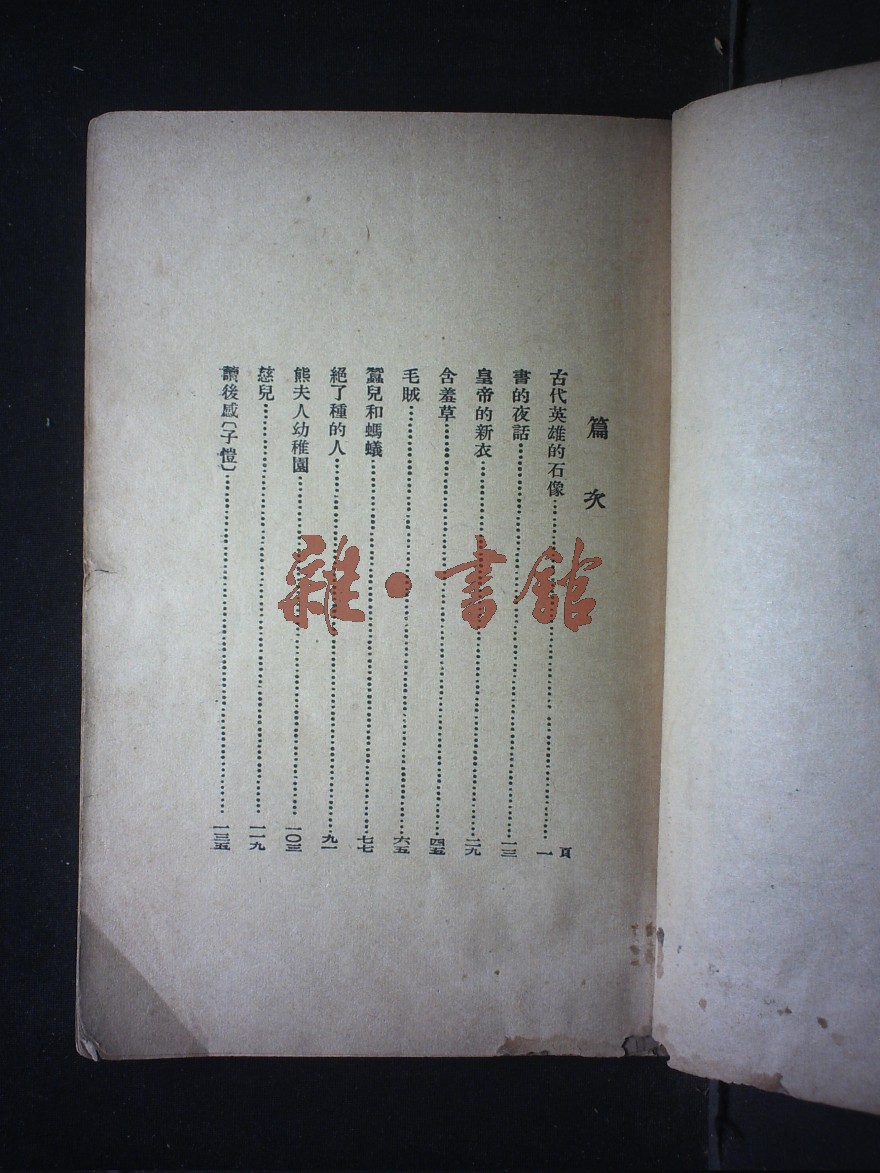 篇次
頁
古代英雄的石像……一
書的夜話……一三
皇帝的新衣……二九
含羞草……四五
毛賊……六五
蠶兒和螞蟻……七七
絕了種的人……九一
熊夫人幼稚園……一〇三
慈兒……一一九
讀後感〔子愷〕……一三五
雜·書館